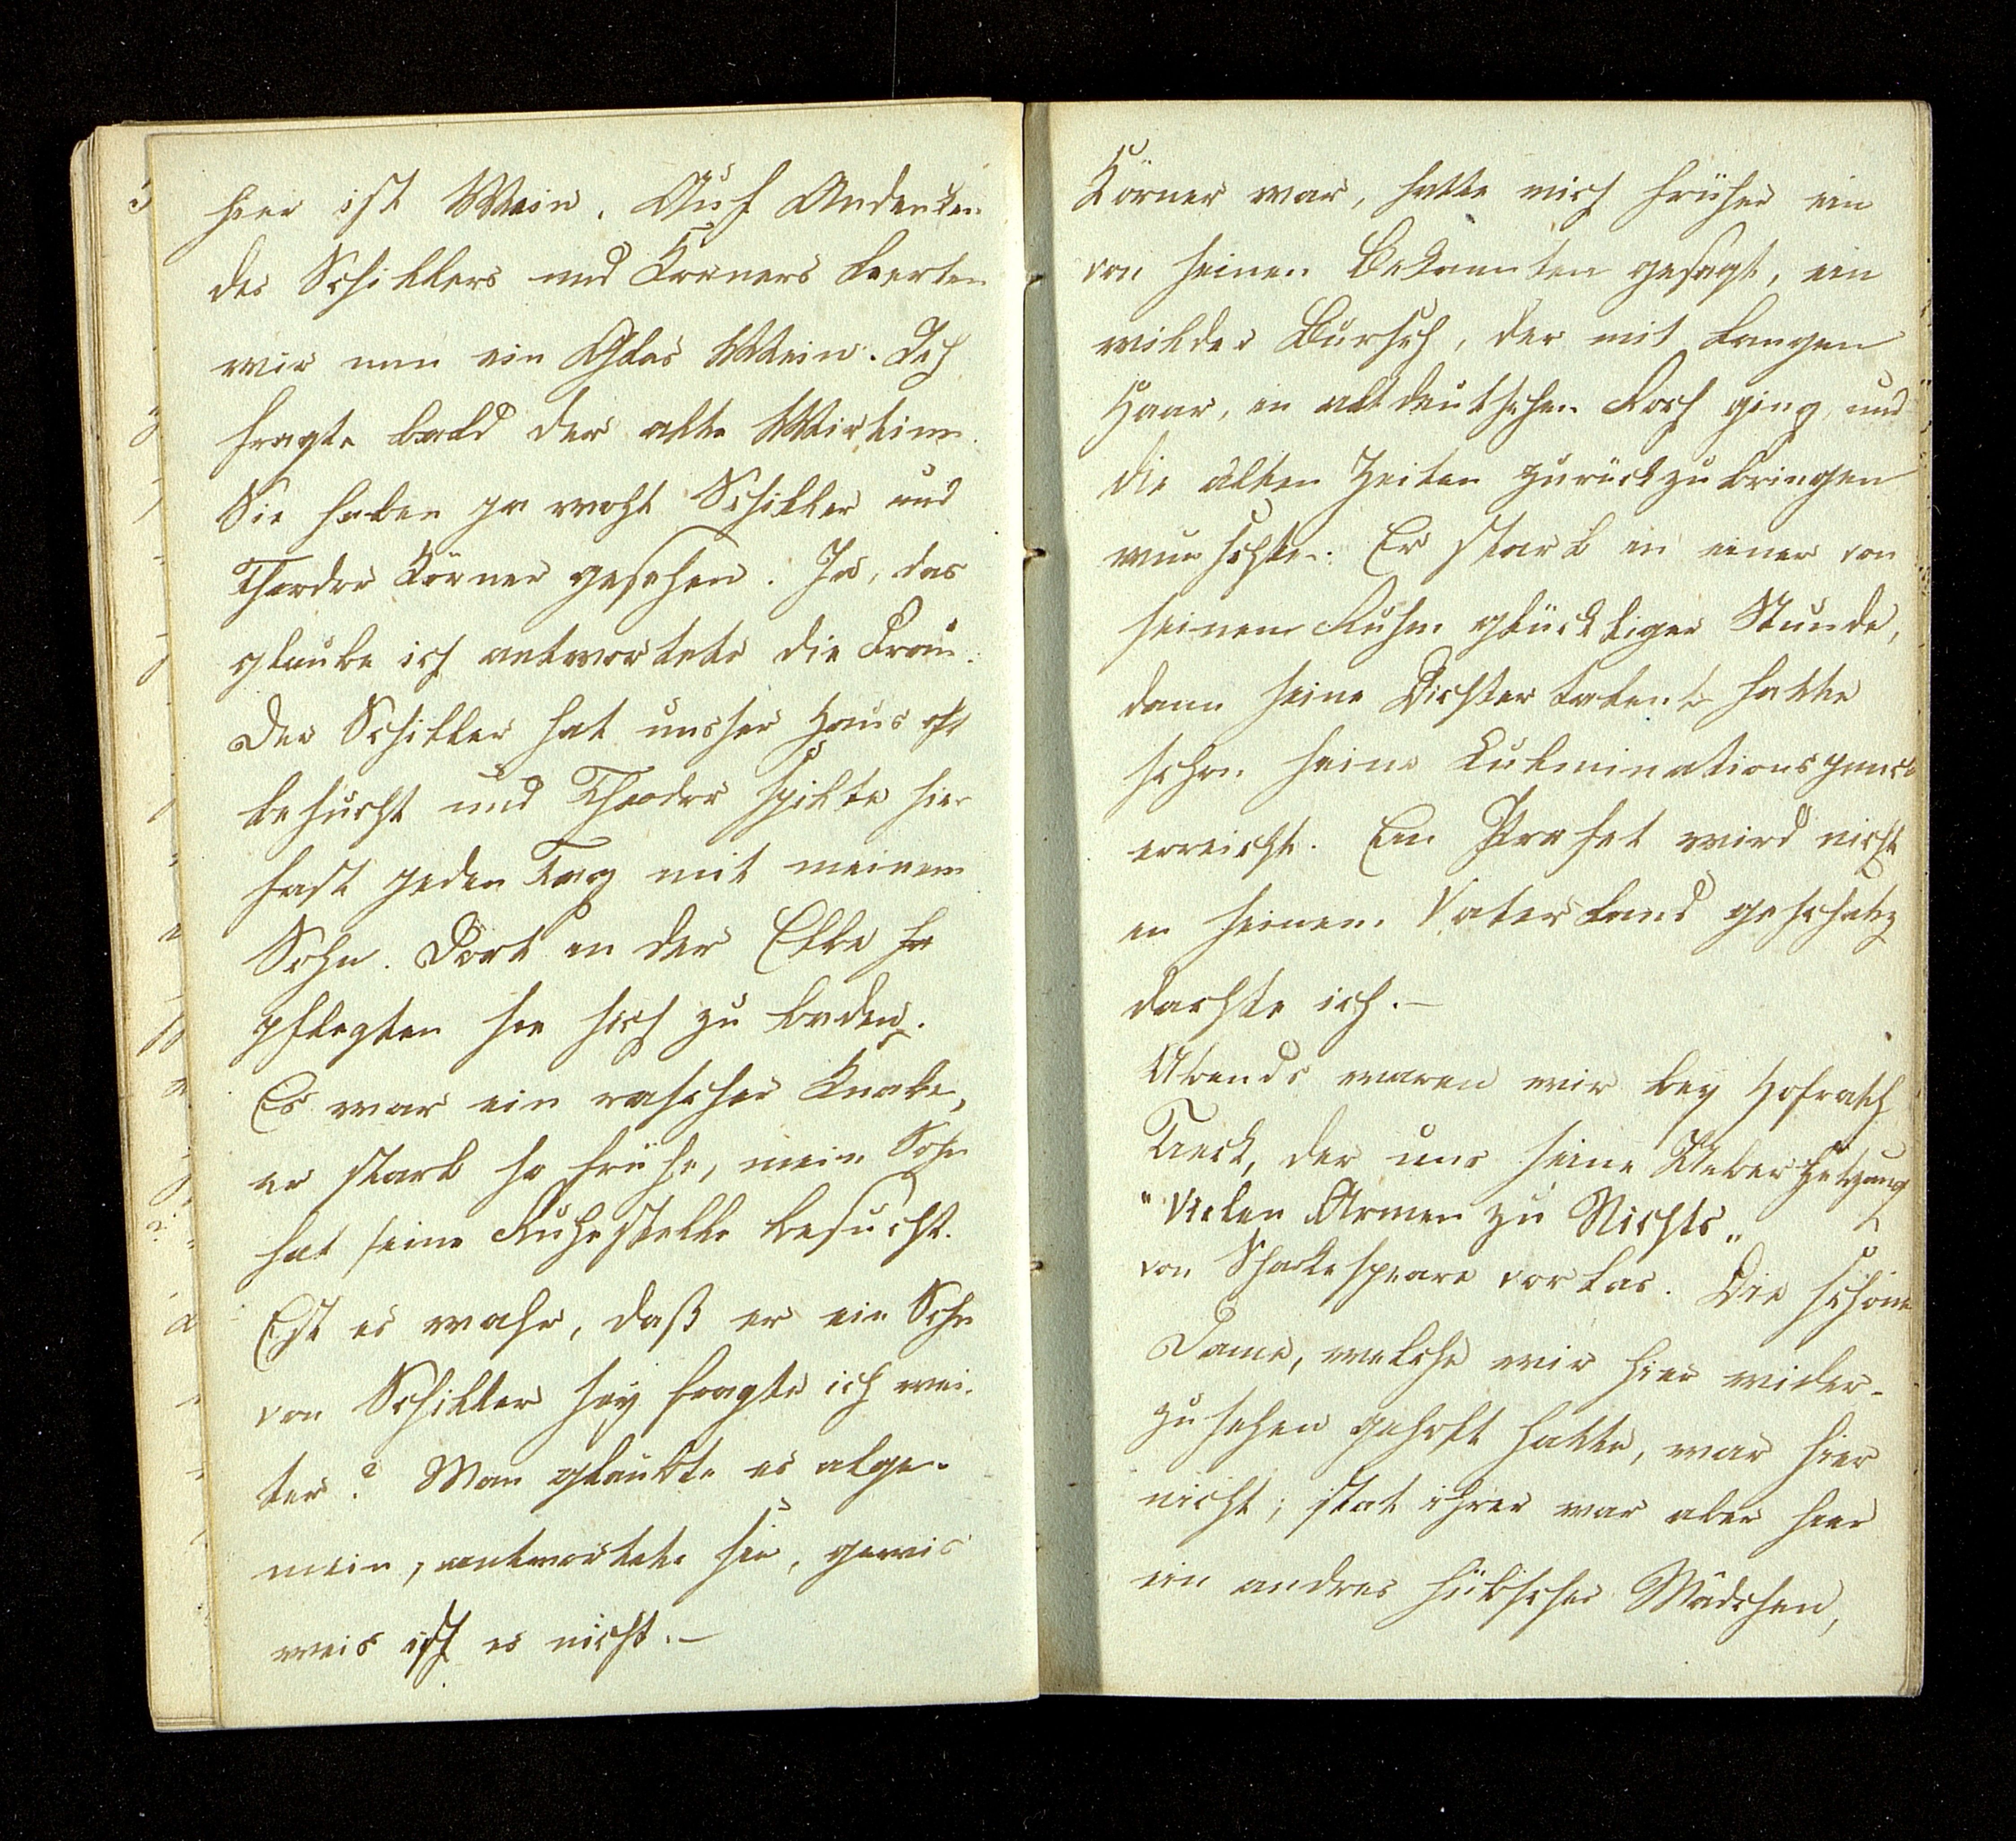 hier ist Wein. Auf Andenken
des Schillers und Körners leerten
wir nun ein Glas Wein. Ich
fragte bald der alte Wirtinn.
Sie haben ja wohl Schiller und
Theodor Körner gesehen. Ja, das
glaube ich antwortete die Frau.
Der Schiller hat unsser Haus oft
besucht und Theodor spilte hier
fast jeden Tag mit meinem
Sohn. Dort in der Elbe
pflegten sie sich zu baden.
Es war ein rascher Knabe,
er starb so frühe, mein Sohn
hat seine Ruhestelle besucht.
Ist es wahr, daß er ein Sohn
von Schiller sey fragte ich wei-
ter? Man glaubte es alge-
mein, antwortete sie, gewis
weis ist es nicht.—
Körner war, hatte mich früher ein
von seinen Bekannten gesagt, ein
wilder Bursch, der mit langen
Haar, in altdeutschen Rock ging und
die alten Zeiten zurückzubringen
wunschte. Er starb in einer von
seinem Ruhm glücktiger Stunde,
dann seine Dichter talente hatte
schon seine Culminationspunct
erreicht. Ein Profet wird nicht
in seinem Vaterland geschatz
dachte ich.—
Abends waren wir bey Hofrath
Tieck, der uns seine Ueberzetzung
"Vielen Armen zu Nichts"
von Shakespeare vorlas. Die schöne
Dame, welche wir hier wider-
zusehen gehoft hatte, war hier
nicht; stat ihrer war aber hier
ein andres hübsches Mädchen,